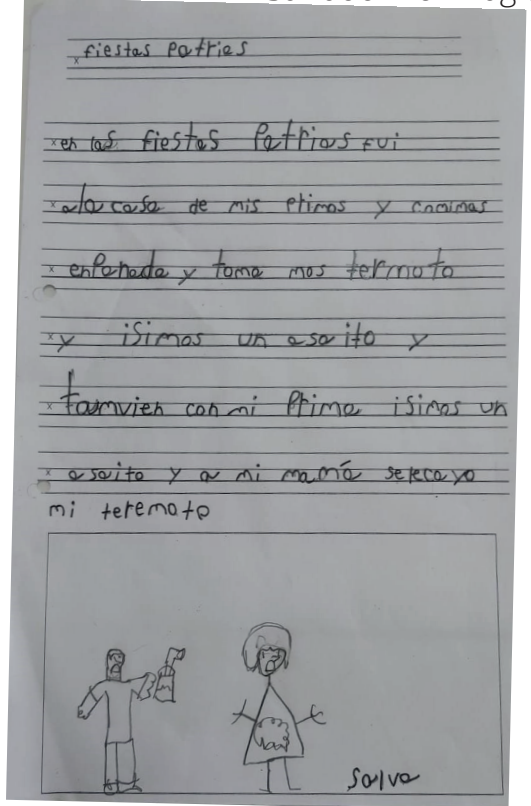 fiestas Patrias
en las fiestas Patrias fui
a la casa de mis Primos y comimas
enPanada y toma mos termoto
y isimos un asaito y
tamvien con mi Prima isimos un
asaito y a mi mamá selecayo
mi teremoto
Salva